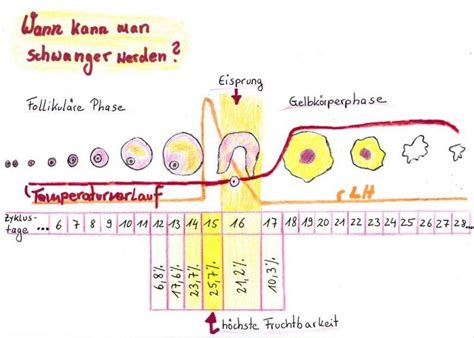 Wann kann man
schwanger werden?
Eisprung
Follikuläre Phase
Gelbkörperphase
Temperaturverlauf
LH
Zyklus-
tage ... 6 7 8 9 10 11 12 13 14 15 16 17 18 19 20 21 22 23 24 25 26 27 28...
6,8% 17,6% 23,7% 25,7% 21,2% 10,3%
höchste Fruchtbarkeit